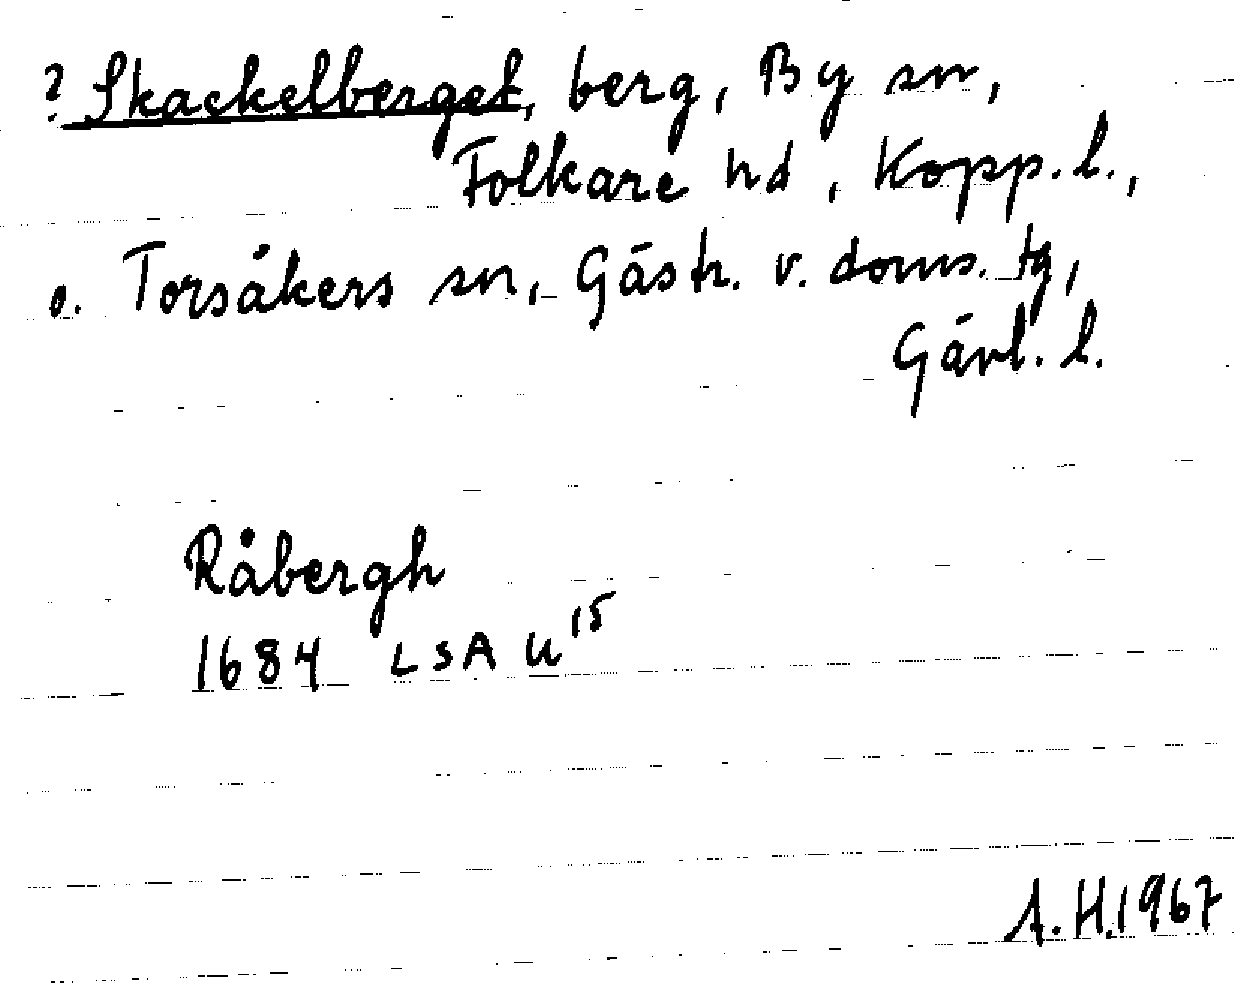 ? Skackelberget, berg, By sn,
Folkare hd, Kopp. l.,
o. Torsåkers sn, Gästr. v. doms. tg,
Gävl. l.
Råbergh
1684 LSA U 15
A. H. 1967